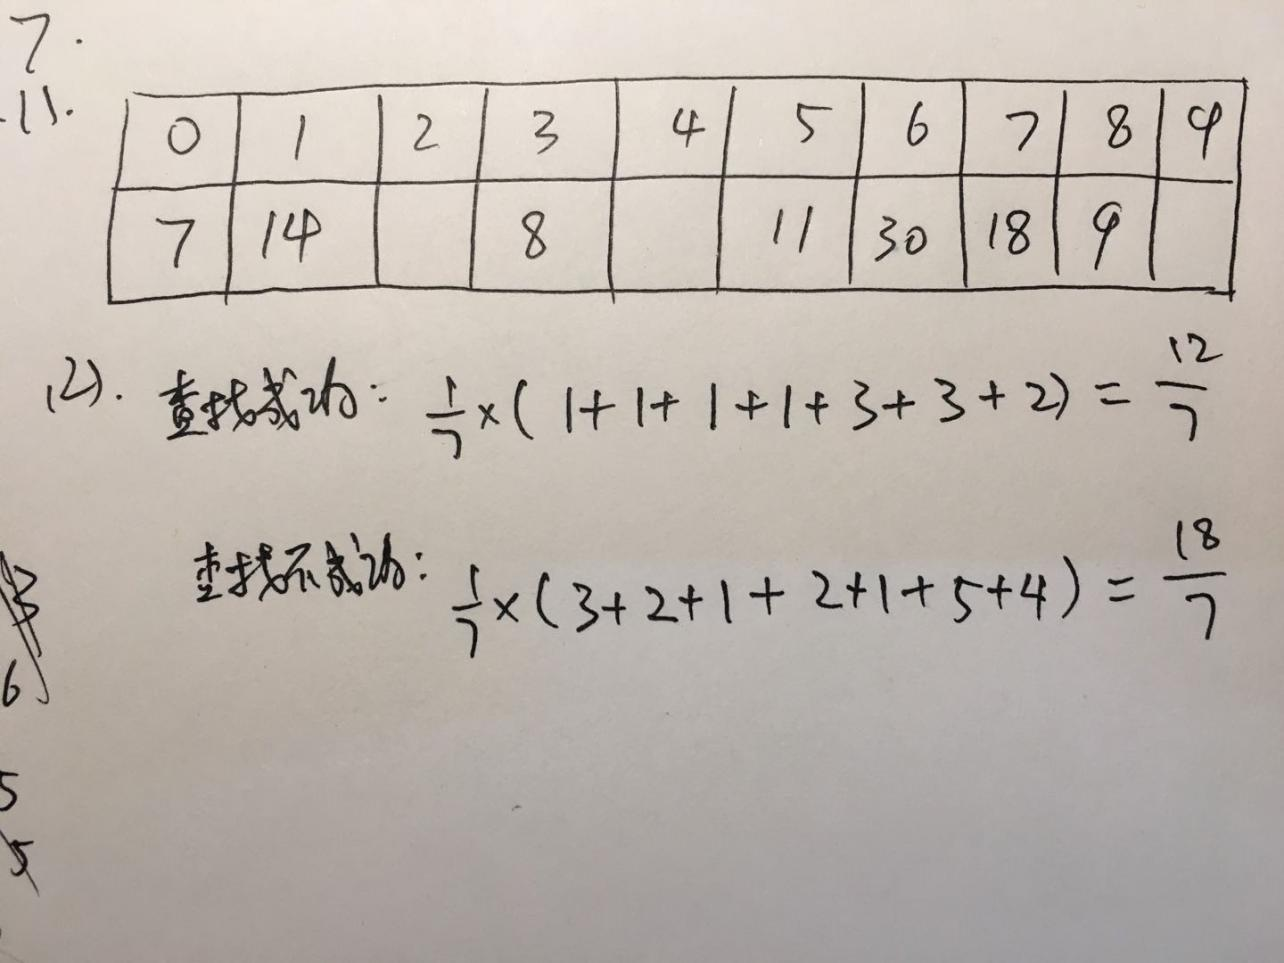 7.
(1).
0 1 2 3 4 5 6 7 8 9
7 14 8 11 30 18 9
(2). 查找成功: 1/7 × ( 1+1+1+1+3+3+2) = 12/7
查找不成功: 1/7 × (3+2+1+2+1+5+4) = 18/7
6
5